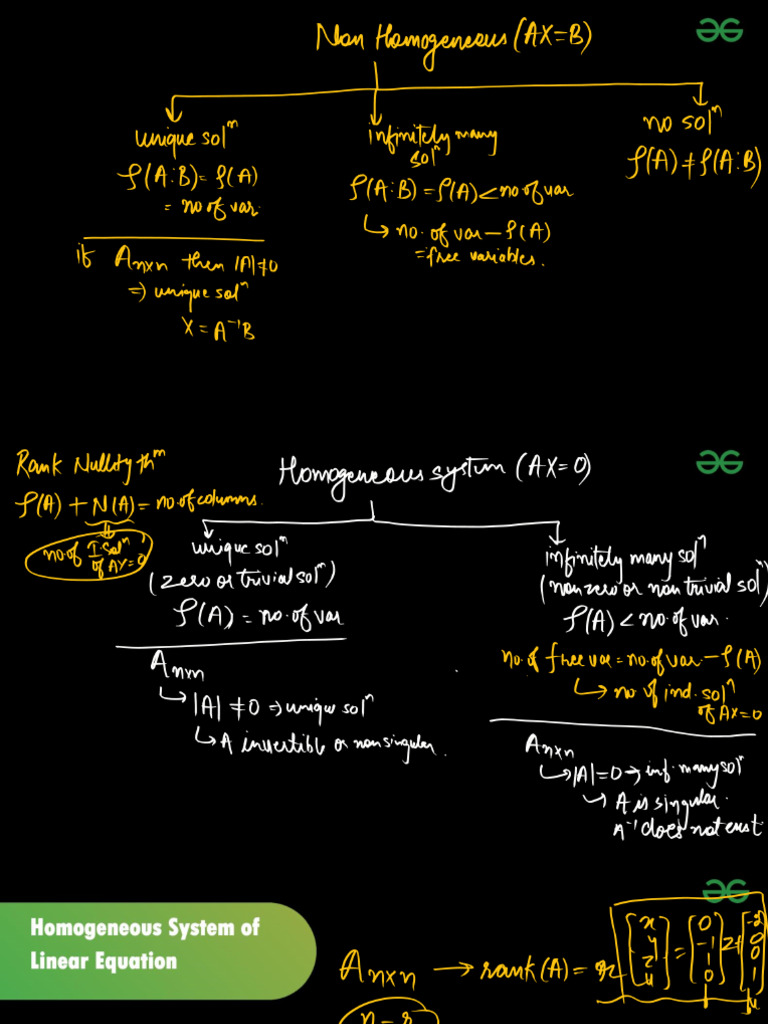 Non Homogeneous (AX=B)
unique solⁿ
ρ(A:B)=ρ(A)
= no of var.
if Anxn then |A|≠0
⇒ unique solⁿ
X = A⁻¹B
infinitely many
solⁿ
ρ(A:B)=ρ(A)<no of var
↳ no. of var − ρ(A)
= free variables.
no solⁿ
ρ(A)≠ρ(A:B)
Rank Nullity thᵐ
ρ(A)+N(A)=no of columns.
no of I solⁿ
of AX=0
Homogeneous system (AX=0)
unique solⁿ
(zero or trivial solⁿ)
ρ(A) = no. of var
Anxn
↳ |A| ≠0 ⇒ unique solⁿ
↳ A invertible or nonsingular.
infinitely many solⁿ
(non zero or non trivial solⁿ)
ρ(A) < no. of var.
no. of free var = no. of var − ρ(A)
↳ no of ind. solⁿ
of AX=0
Anxn
↳ |A|=0 → inf. many solⁿ
↳ A is singular.
A⁻¹ does not exist
Homogeneous System of
Linear Equation
Anxn → rank(A)= r
[x y z u] = [0 -1 1 0] z + [-2 0 0 1] u
n-r